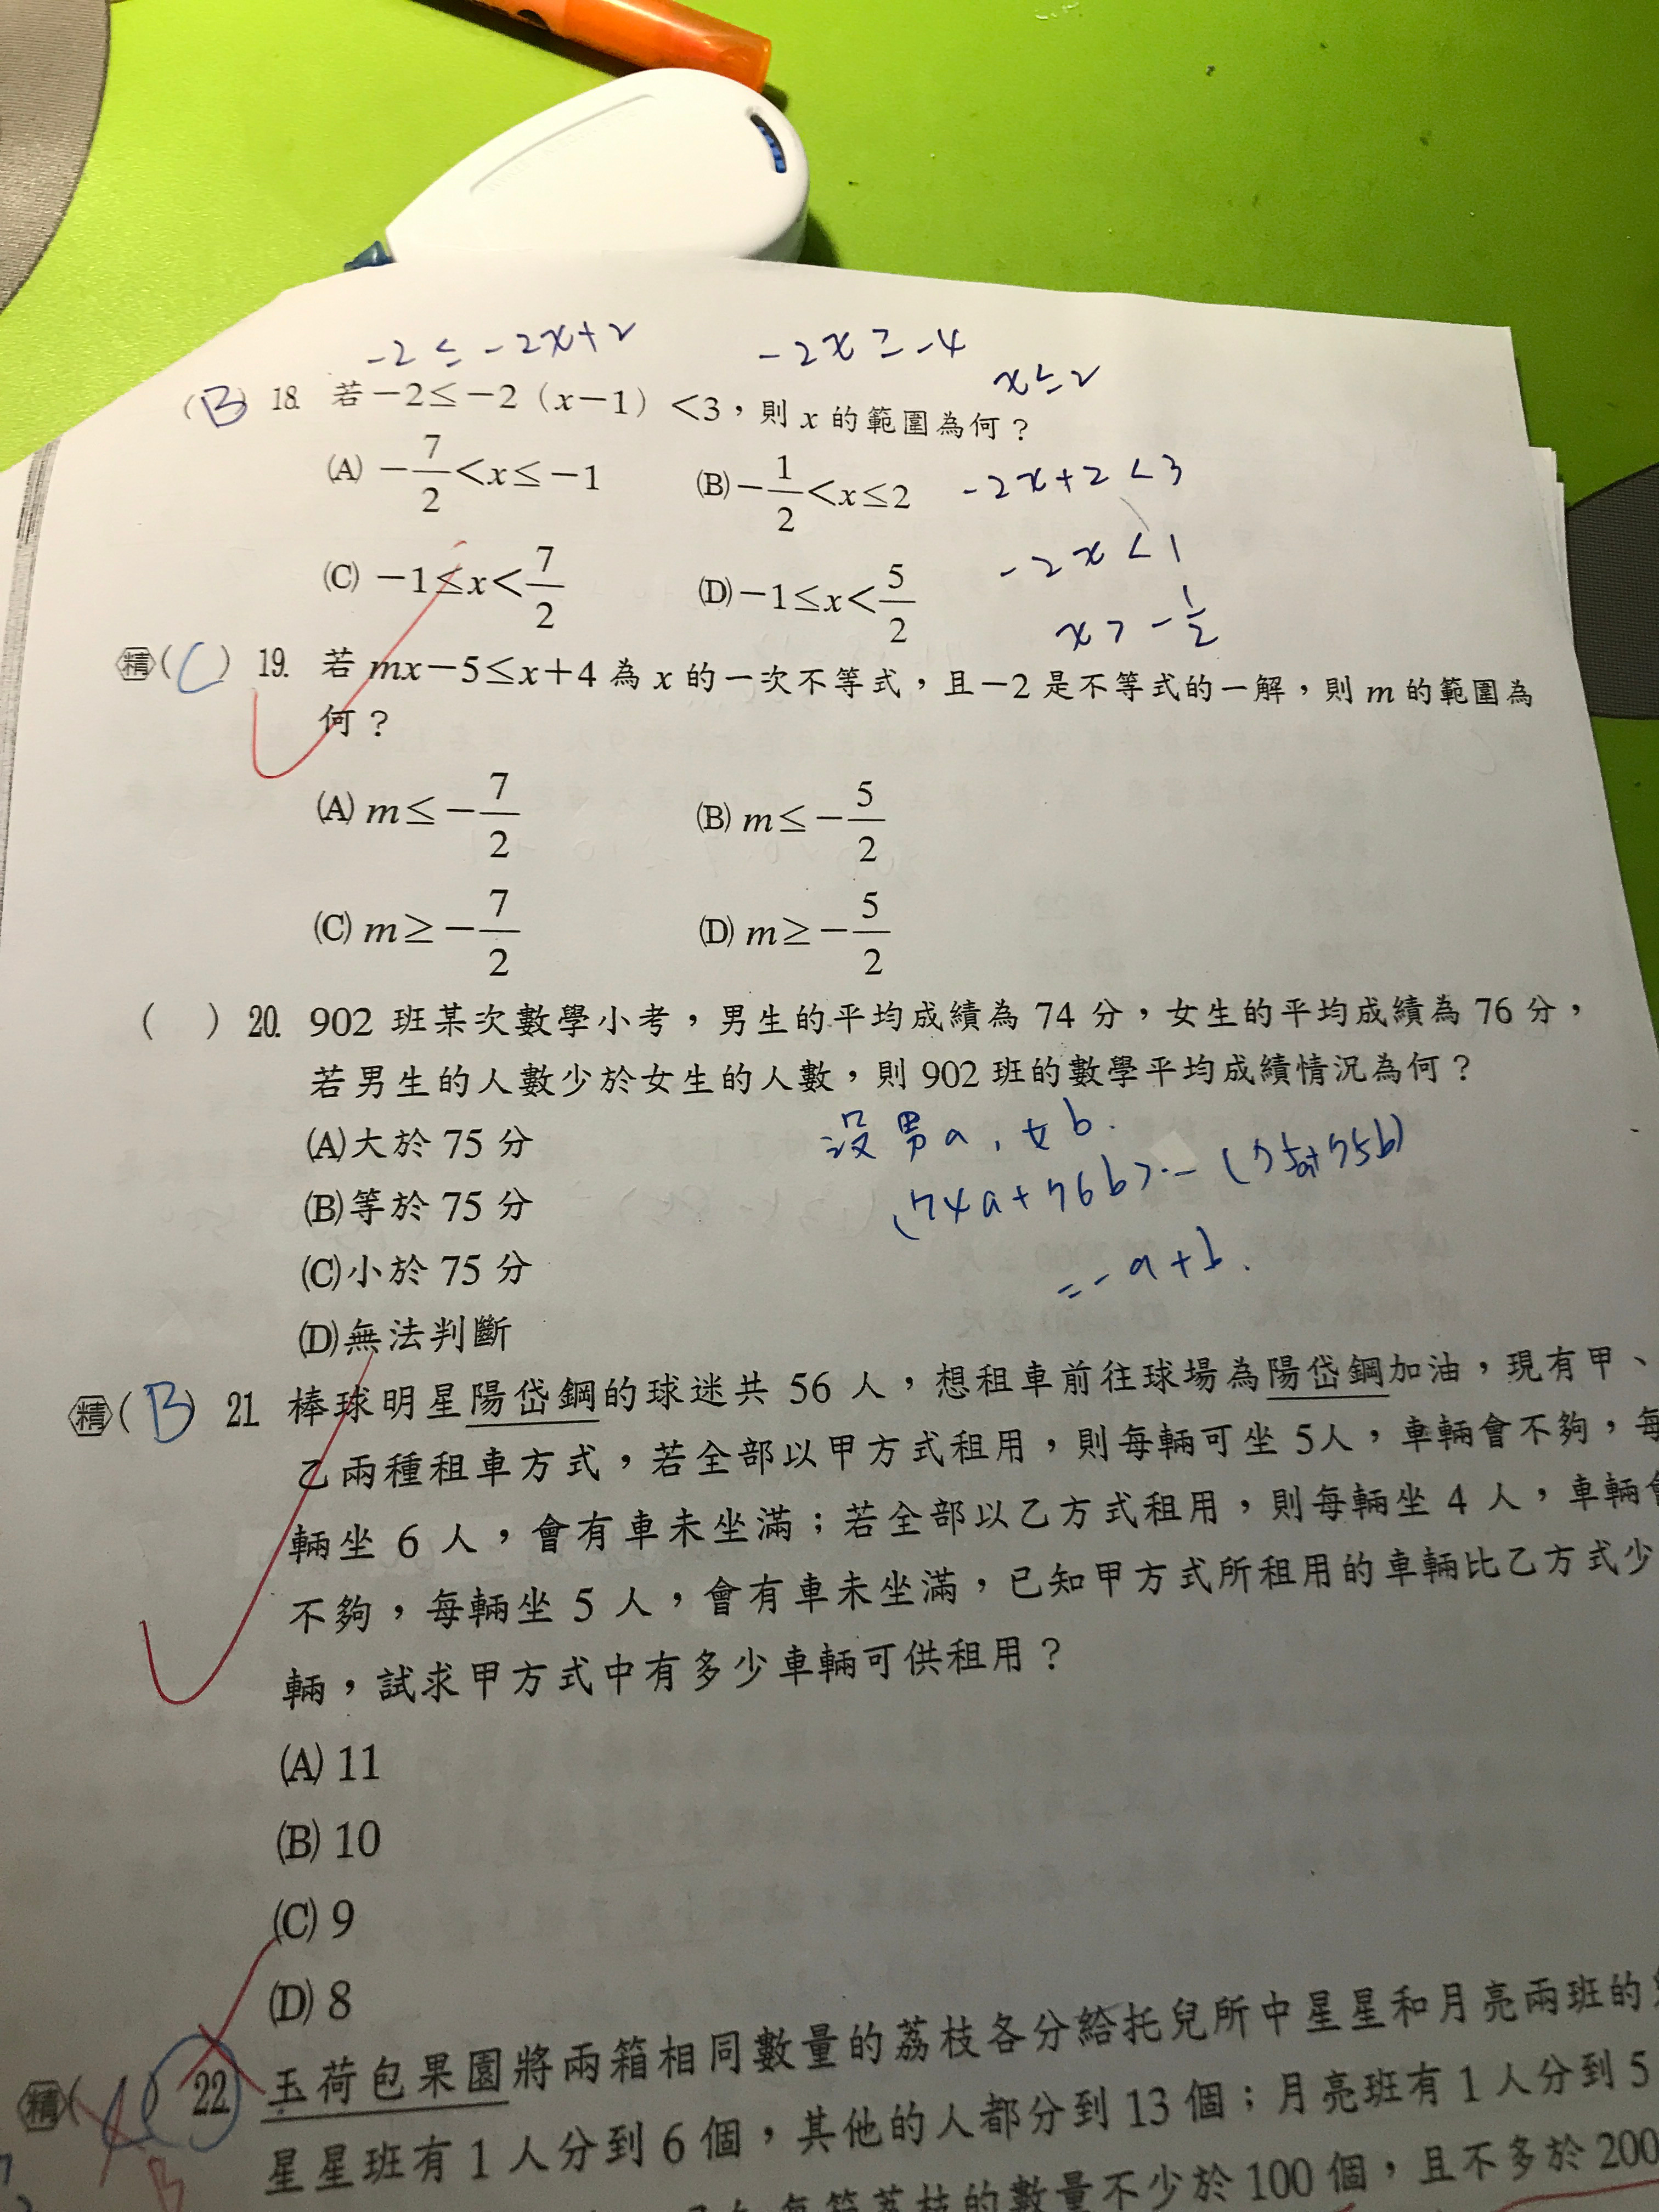 -2 ≤ -2x+2
-2x ≥ -4
x ≤ 2
(B) 18. 若－2≤－2（x－1）＜3，則 x 的範圍為何？
(A) －7/2＜x≤－1 (B)－1/2＜x≤2
-2x+2 < 3
(C) －1≤x＜7/2 (D)－1≤x＜5/2
-2x < 1
x > -1/2
精(C) 19. 若 mx－5≤x＋4 為 x 的一次不等式，且－2 是不等式的一解，則 m 的範圍為
何？
(A) m≤－7/2 (B) m≤－5/2
(C) m≥－7/2 (D) m≥－5/2
( ) 20. 902 班某次數學小考，男生的平均成績為 74 分，女生的平均成績為 76 分，
若男生的人數少於女生的人數，則 902 班的數學平均成績情況為何？
(A)大於 75 分
設男a，女b.
(B)等於 75 分
(74a+76b)-(75a+75b)
(C)小於 75 分
=-a+b.
(D)無法判斷
精(B) 21. 棒球明星陽岱鋼的球迷共 56 人，想租車前往球場為陽岱鋼加油，現有甲、
乙兩種租車方式，若全部以甲方式租用，則每輛可坐 5人，車輛會不夠，每
輛坐 6 人，會有車未坐滿；若全部以乙方式租用，則每輛坐 4 人，車輛會
不夠，每輛坐 5 人，會有車未坐滿，已知甲方式所租用的車輛比乙方式少
輛，試求甲方式中有多少車輛可供租用？
(A) 11
(B) 10
(C) 9
(D) 8
精( ) 22. 玉荷包果園將兩箱相同數量的荔枝各分給托兒所中星星和月亮兩班的
B
星星班有 1 人分到 6 個，其他的人都分到 13 個；月亮班有 1 人分到 5
每箱荔枝的數量不少於 100 個，且不多於 200